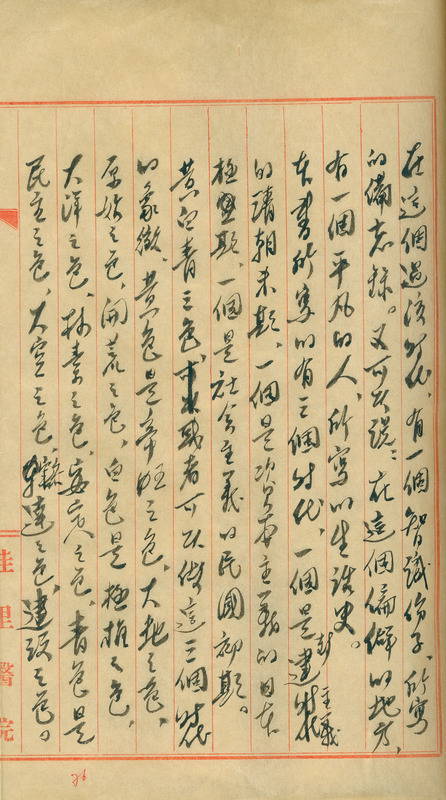 在這個過渡時代、有一個智識份子、所寫
的備忘錄。又可以說：在這個偏僻的地方、
有一個平凡的人、所寫的生活史。
本書所寫的有三個時代、一個是封建主義時代
的清朝末期、一個是資本主義的日本
極盛期、一個是社會主義的民國初期。
黃白青三色或者可以做這三個時代
的象徵、黃色是帝旺之色、大地之色、
原始之色、開荒之色、白色是極權之色、
大洋之色、樸素之色、之色、青色是
民主之色、大空之色、達之色、建設之色。
佳里醫院